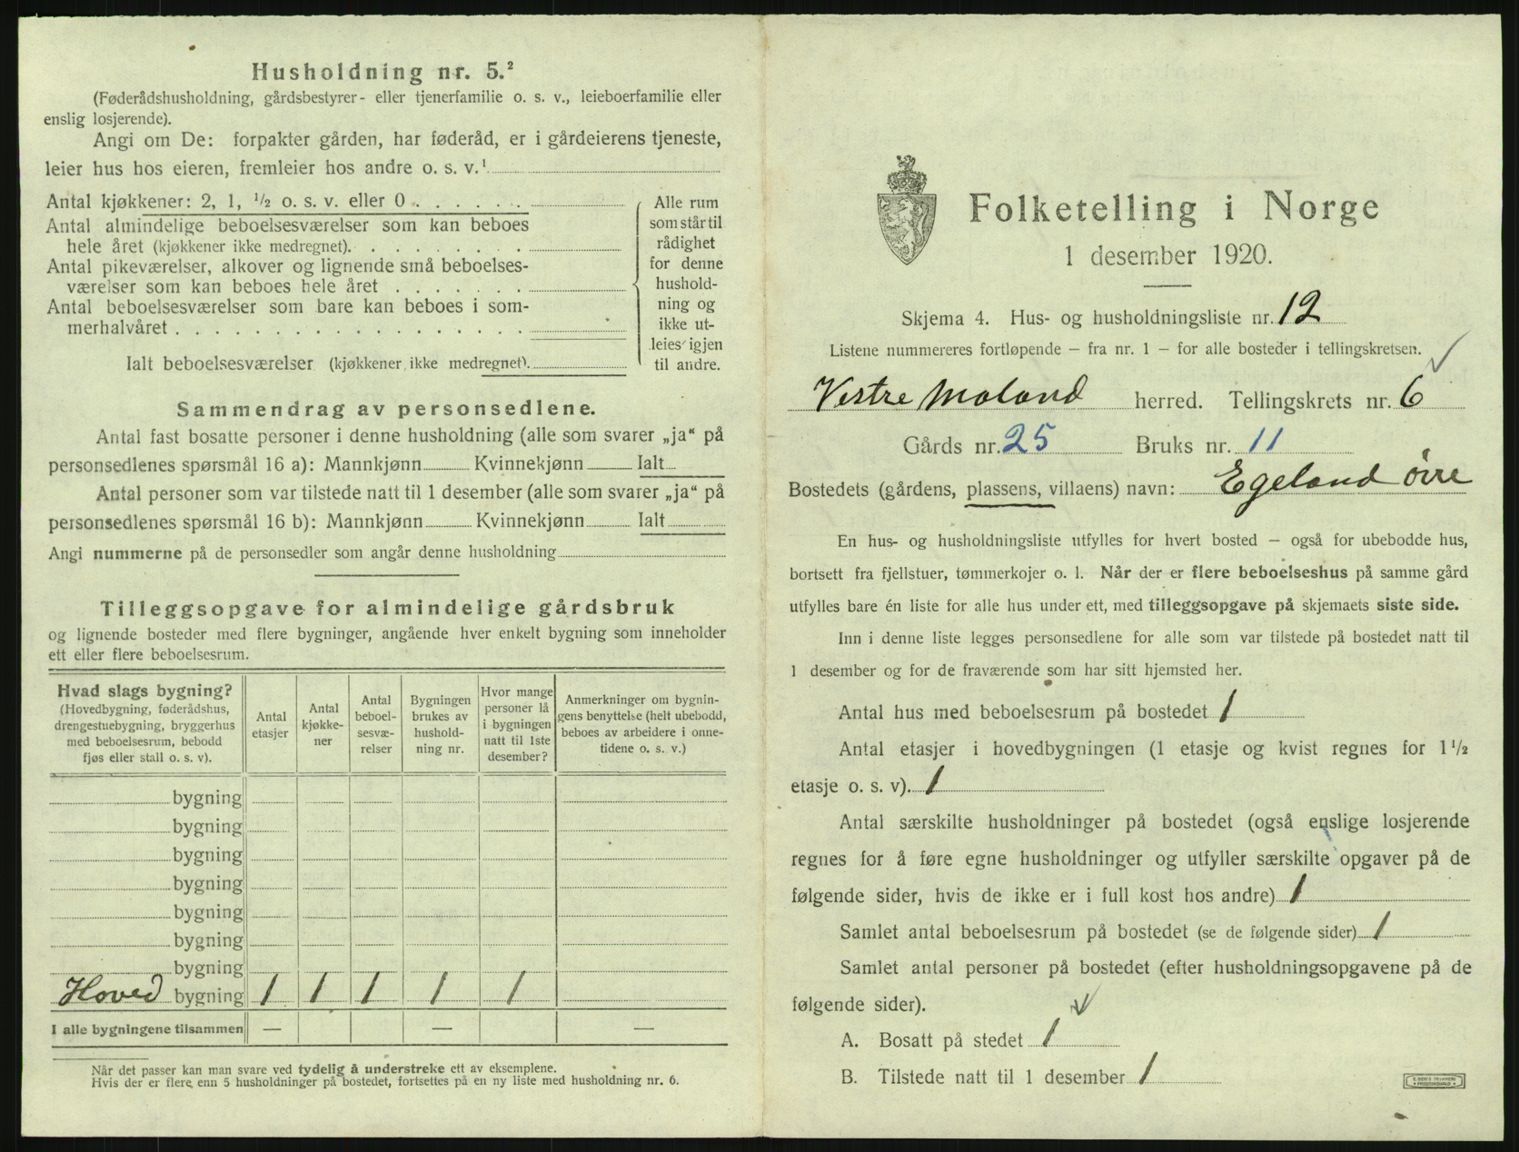 Husholdning nr. 5.²
(Føderådshusholdning, gårdsbestyrer- eller tjenerfamilie o. s. v., leieboerfamilie eller
enslig losjerende).
Angi om De: forpakter gården, har føderåd, er i gårdeierens tjeneste,
leier hus hos eieren, fremleier hos andre o. s. v.¹
Antal kjøkkener: 2, 1, ½ o. s. v. eller 0 . . . . . .
Antal almindelige beboelsesværelser som kan beboes
hele året (kjøkkener ikke medregnet). . . . . . . . .
Antal pikeværelser, alkover og lignende små beboelses-
værelser som kan beboes hele året . . . . . . .
Antal beboelsesværelser som bare kan beboes i som-
merhalvåret . . . . . . . . . . . . . . . . . .
Ialt beboelsesværelser (kjøkkener ikke medregnet).
Alle rum
som står til
rådighet
for denne
hushold-
ning og
ikke ut-
leies igjen
til andre.
Sammendrag av personsedlene.
Antal fast bosatte personer i denne husholdning (alle som svarer „ja“ på
personsedlenes spørsmål 16 a): Mannkjønn Kvinnekjønn Ialt
Antal personer som var tilstede natt til 1 desember (alle som svarer „ja“ på
personsedlenes spørsmål 16 b): Mannkjønn Kvinnekjønn Ialt
Angi nummerne på de personsedler som angår denne husholdning
Tilleggsopgave for almindelige gårdsbruk
og lignende bosteder med flere bygninger, angående hver enkelt bygning som inneholder
ett eller flere beboelsesrum.
Hvad slags bygning?
(Hovedbygning, føderådshus,
drengestuebygning, bryggerhus
med beboelsesrum, bebodd
fjøs eller stall o. s. v).
Antal
etasjer
Antal
kjøkke-
ner
Antal
beboel-
sesvæ-
relser
Bygningen
brukes av
hushold-
ning nr.
Hvor mange
personer lå
i bygningen
natt til 1ste
desember?
Anmerkninger om bygnin-
gens benyttelse (helt ubebodd,
beboes av arbeidere i onne-
tidene o. s. v.)
bygning
bygning
bygning
bygning
bygning
bygning
bygning
Hoved bygning 1 1 1 1 1
I alle bygningene tilsammen — — —
Når det passer kan man svare ved tydelig å understreke ett av eksemplene.
Hvis der er flere enn 5 husholdninger på bostedet, fortsettes på en ny liste med husholdning nr. 6.
Folketelling i Norge
1 desember 1920.
Skjema 4. Hus- og husholdningsliste nr. 12
Listene nummereres fortløpende – fra nr. 1 – for alle bosteder i tellingskretsen.
Vestre Moland herred. Tellingskrets nr. 6
Gårds nr. 25 Bruks nr. 11
Bostedets (gårdens, plassens, villaens) navn: Egeland övre
En hus- og husholdningsliste utfylles for hvert bosted – også for ubebodde hus,
bortsett fra fjellstuer, tømmerkojer o. l. Når der er flere beboelseshus på samme gård
utfylles bare én liste for alle hus under ett, med tilleggsopgave på skjemaets siste side.
Inn i denne liste legges personsedlene for alle som var tilstede på bostedet natt til
1 desember og for de fraværende som har sitt hjemsted her.
Antal hus med beboelsesrum på bostedet 1
Antal etasjer i hovedbygningen (1 etasje og kvist regnes for 1 ½
etasje o. s. v). 1
Antal særskilte husholdninger på bostedet (også enslige losjerende
regnes for å føre egne husholdninger og utfyller særskilte opgaver på de
følgende sider, hvis de ikke er i full kost hos andre) 1
Samlet antal beboelsesrum på bostedet (se de følgende sider) 1
Samlet antal personer på bostedet (efter husholdningsopgavene på de
følgende sider).
A. Bosatt på stedet 1
B. Tilstede natt til 1 desember 1